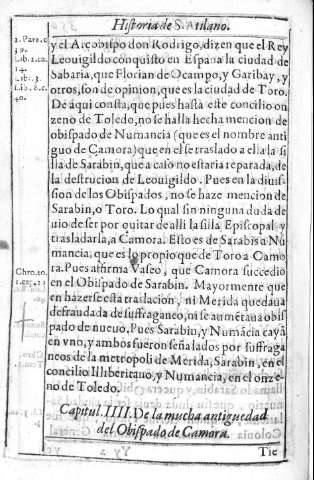 Historia de S. Atilano.
y el Arçobispo don Rodrigo, dizen que el Rey
Leouigildo conquisto en España la ciudad de
Sabaria, que Florian de Ocampo, y Garibay, y
otros, son de opinion, que es la ciudad de Toro.
De aqui consta, que pues hasta este concilio on
zeno de Toledo, no se halla hecha mencion de
obispado de Numancia (que es el nombre anti
guo de Çamora) que en el se traslado a ella la si
lla de Sabarin, que a caso no estaria reparada, de
la destrucion de Leouigildo. Pues en la diuis
sion de los Obispados, no se haze mencion de
Sarabin, o Toro. Lo qual sin ninguna duda de
uio de ser por quitar de alli la silla Episcopal, y
trasladarla, a Çamora. Esto es de Sarabis a Nu
mancia, que es lo propio que de Toro a Çamo
ra. Pues affirma Vaseo, que Çamora succedio
en el Obispado de Sarabin. Mayormente que
en hazerse esta traslacion, ni Merida quedaua
defraudada de suffraganeo, ni se aumẽtaua obis
pado de nueuo. Pues Sarabin, y Numãcia cayã
en vno, y ambos fueron señalados por suffraga
neos de la metropoli de Merida, Sarabin, en el
concilio Illiberitano, y Numancia, en el onze-
no de Toledo.
Capitul. IIII. De la mucha antiguedad
del Obispado de Çamora.
Tie
2. Para. c
39.
Lib. 2. ca.
14.
Lib. 3.
Lib. 8. c.
40.
Chro. to.